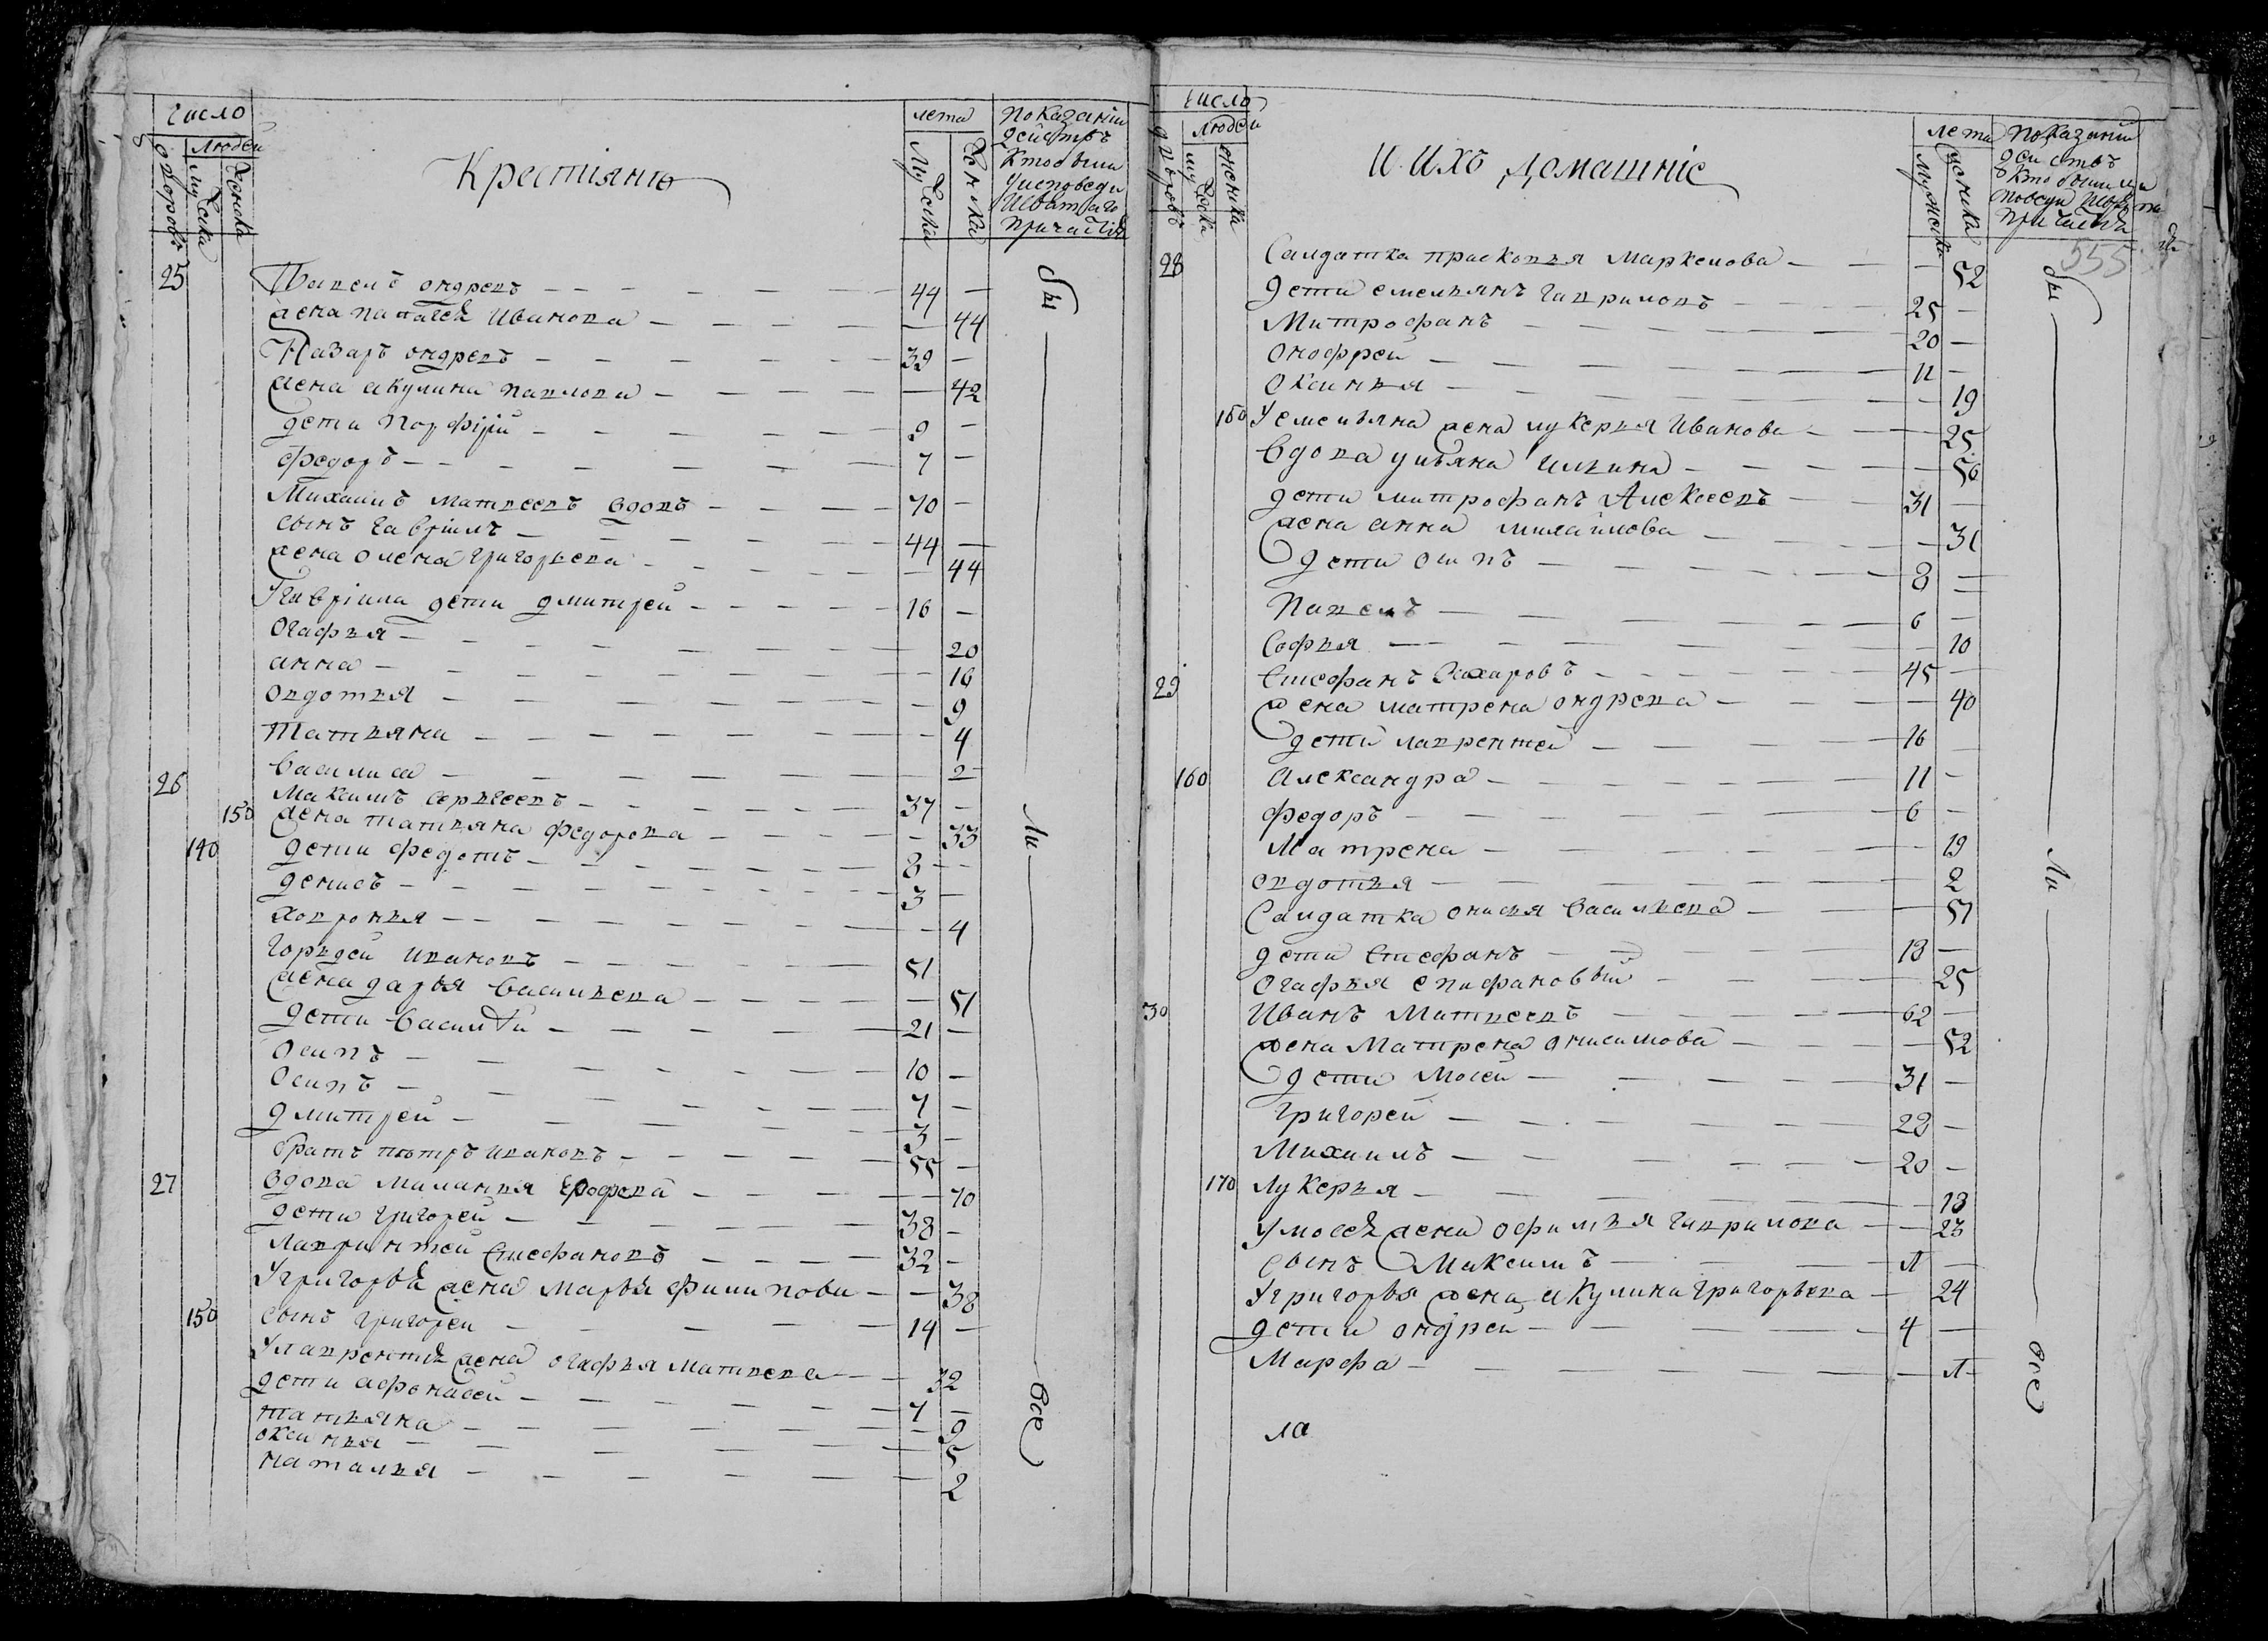 число
людей
дворовъ
мужска
женска
Крестіянѣ
лета
мужска
женска
показаніи
действъ
кто были
у исповеди
и святаго
причастія
25 Павелъ ондревъ — 44 —
жена палагеѣ иванова — 44
Назаръ ондревъ — 39 —
жена акулина павлова — 42
дети порфірій — 9 —
федоръ — 7 —
Михаилъ матвеевъ вдовъ — 70 —
сынъ гавріилъ — 44 —
жена олена григорьева — 44
Гавріила дети дмитрей — 16 —
огафья — 20
анна — 16
овдотья — 9
татьяна — 4
василиса — 2
26 Максимъ сергеевъ — 37 —
150 жена татьяна федорова — 33
140 дети федотъ — 8 —
денисъ — 3 —
ховронья — 4
гордей ивановъ — 51
жена дарья васильева — 51
дети василѣи — 21 —
осипъ — 10 —
осипъ — 7 —
дмитрей — 3 —
братъ петръ ивановъ — 55 —
27 вдова маланья ерофева — 70
дети григорей — 38 —
лаврентей стефановъ — 32 —
у григорьѣ жена марья филипова — 38
150 сынъ григорей — 14 —
у лаврентьѣ жена огафья матвева — 32
дети афонасей — 7 —
татьяна — 9
оксинья — 5
наталья — 2
бы
ли
все
число
людей
дворовъ
мужска
женска
и ихъ домашніе
лета
мужска
женска
показаніи
действъ
кто были и
поведи и свята
причастія
555
28 Салдатка прасковья Маркелова — 52
дети емельянъ гавриловъ — 25 —
Митрофанъ — 20 —
онофрей — 11 —
оксинья — 19
160 у емельяна жена лукерья иванова — 25
вдова ульяна ильина — 56
дети митрофанъ Алексеевъ — 31 —
жена анна михаилова — 31
дети осипъ — 8 —
павелъ — 6 —
софья — 10
29 Стефанъ Захаровъ — 45 —
жена матрена ондрева — 40
дети лаврентей — 16
160 александра — 11 —
федоръ — 6 —
Матрена — 19
овдотья — 2
Салдатка онисья васильева — 51
дети стефанъ — 18 —
огафья епифановыи — 25
30 Иванъ Матвеевъ — 62 —
жена Матрена онисимова — 52
дети Мосеи — 31 —
григорей — 22 —
Михаилъ — 20 —
170 лукерья — 18
у мосеѣ жена офимья гаврилова — 23
сынъ Максимъ — л —
у григорья жена акулина григорьева — 24
дети ондрей — 4 —
Марфа — л
ла
бы
ли
все